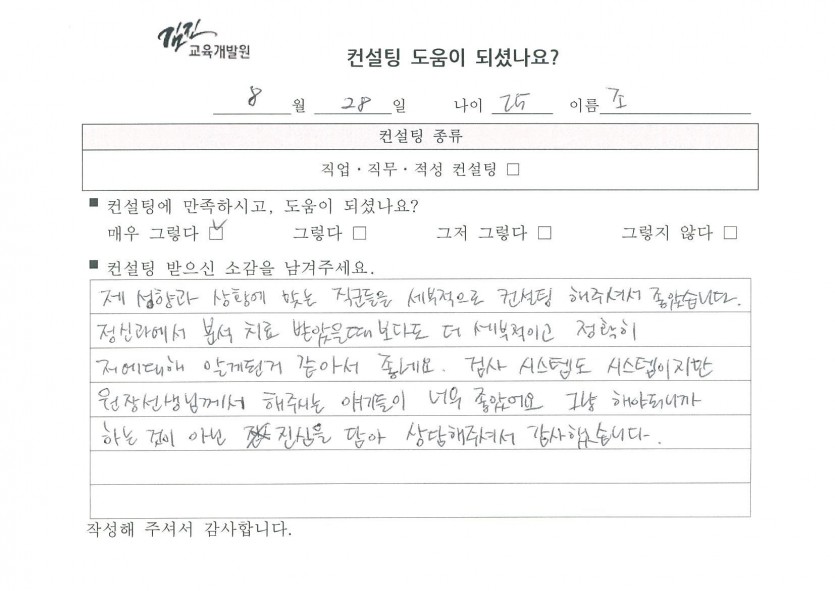 김진
교육개발원
컨설팅 도움이 되셨나요?
8 월 28 일 나이 25 이름 조
컨설팅 종류
직업·직무·적성 컨설팅 □
■ 컨설팅에 만족하시고, 도움이 되셨나요?
매우 그렇다 ☑ 그렇다 □ 그저 그렇다 □ 그렇지 않다 □
■ 컨설팅 받으신 소감을 남겨주세요.
제 성향과 상황에 맞는 직군들을 세부적으로 컨설팅 해주셔서 좋았습니다.
정신과에서 분석 치료 받았을때보다도 더 세부적이고 정확히
저에대해 알게된거 같아서 좋네요. 검사 시스템도 시스템이지만
원장선생님께서 해주시는 얘기들이 너무 좋았어요 그냥 해야되니까
하는 것이 아닌 진심을 담아 상담해주셔서 감사했습니다.
작성해 주셔서 감사합니다.